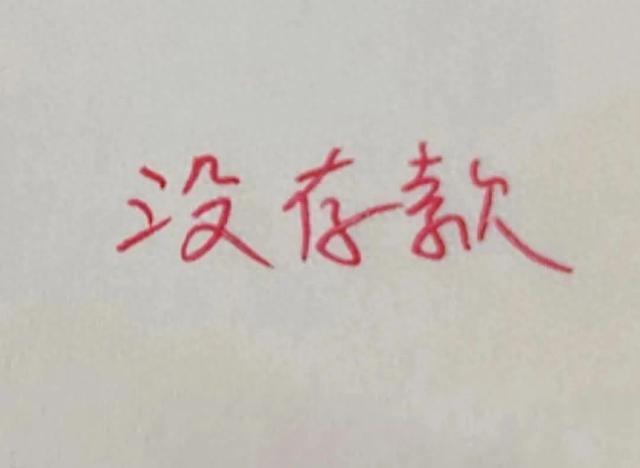 没存款